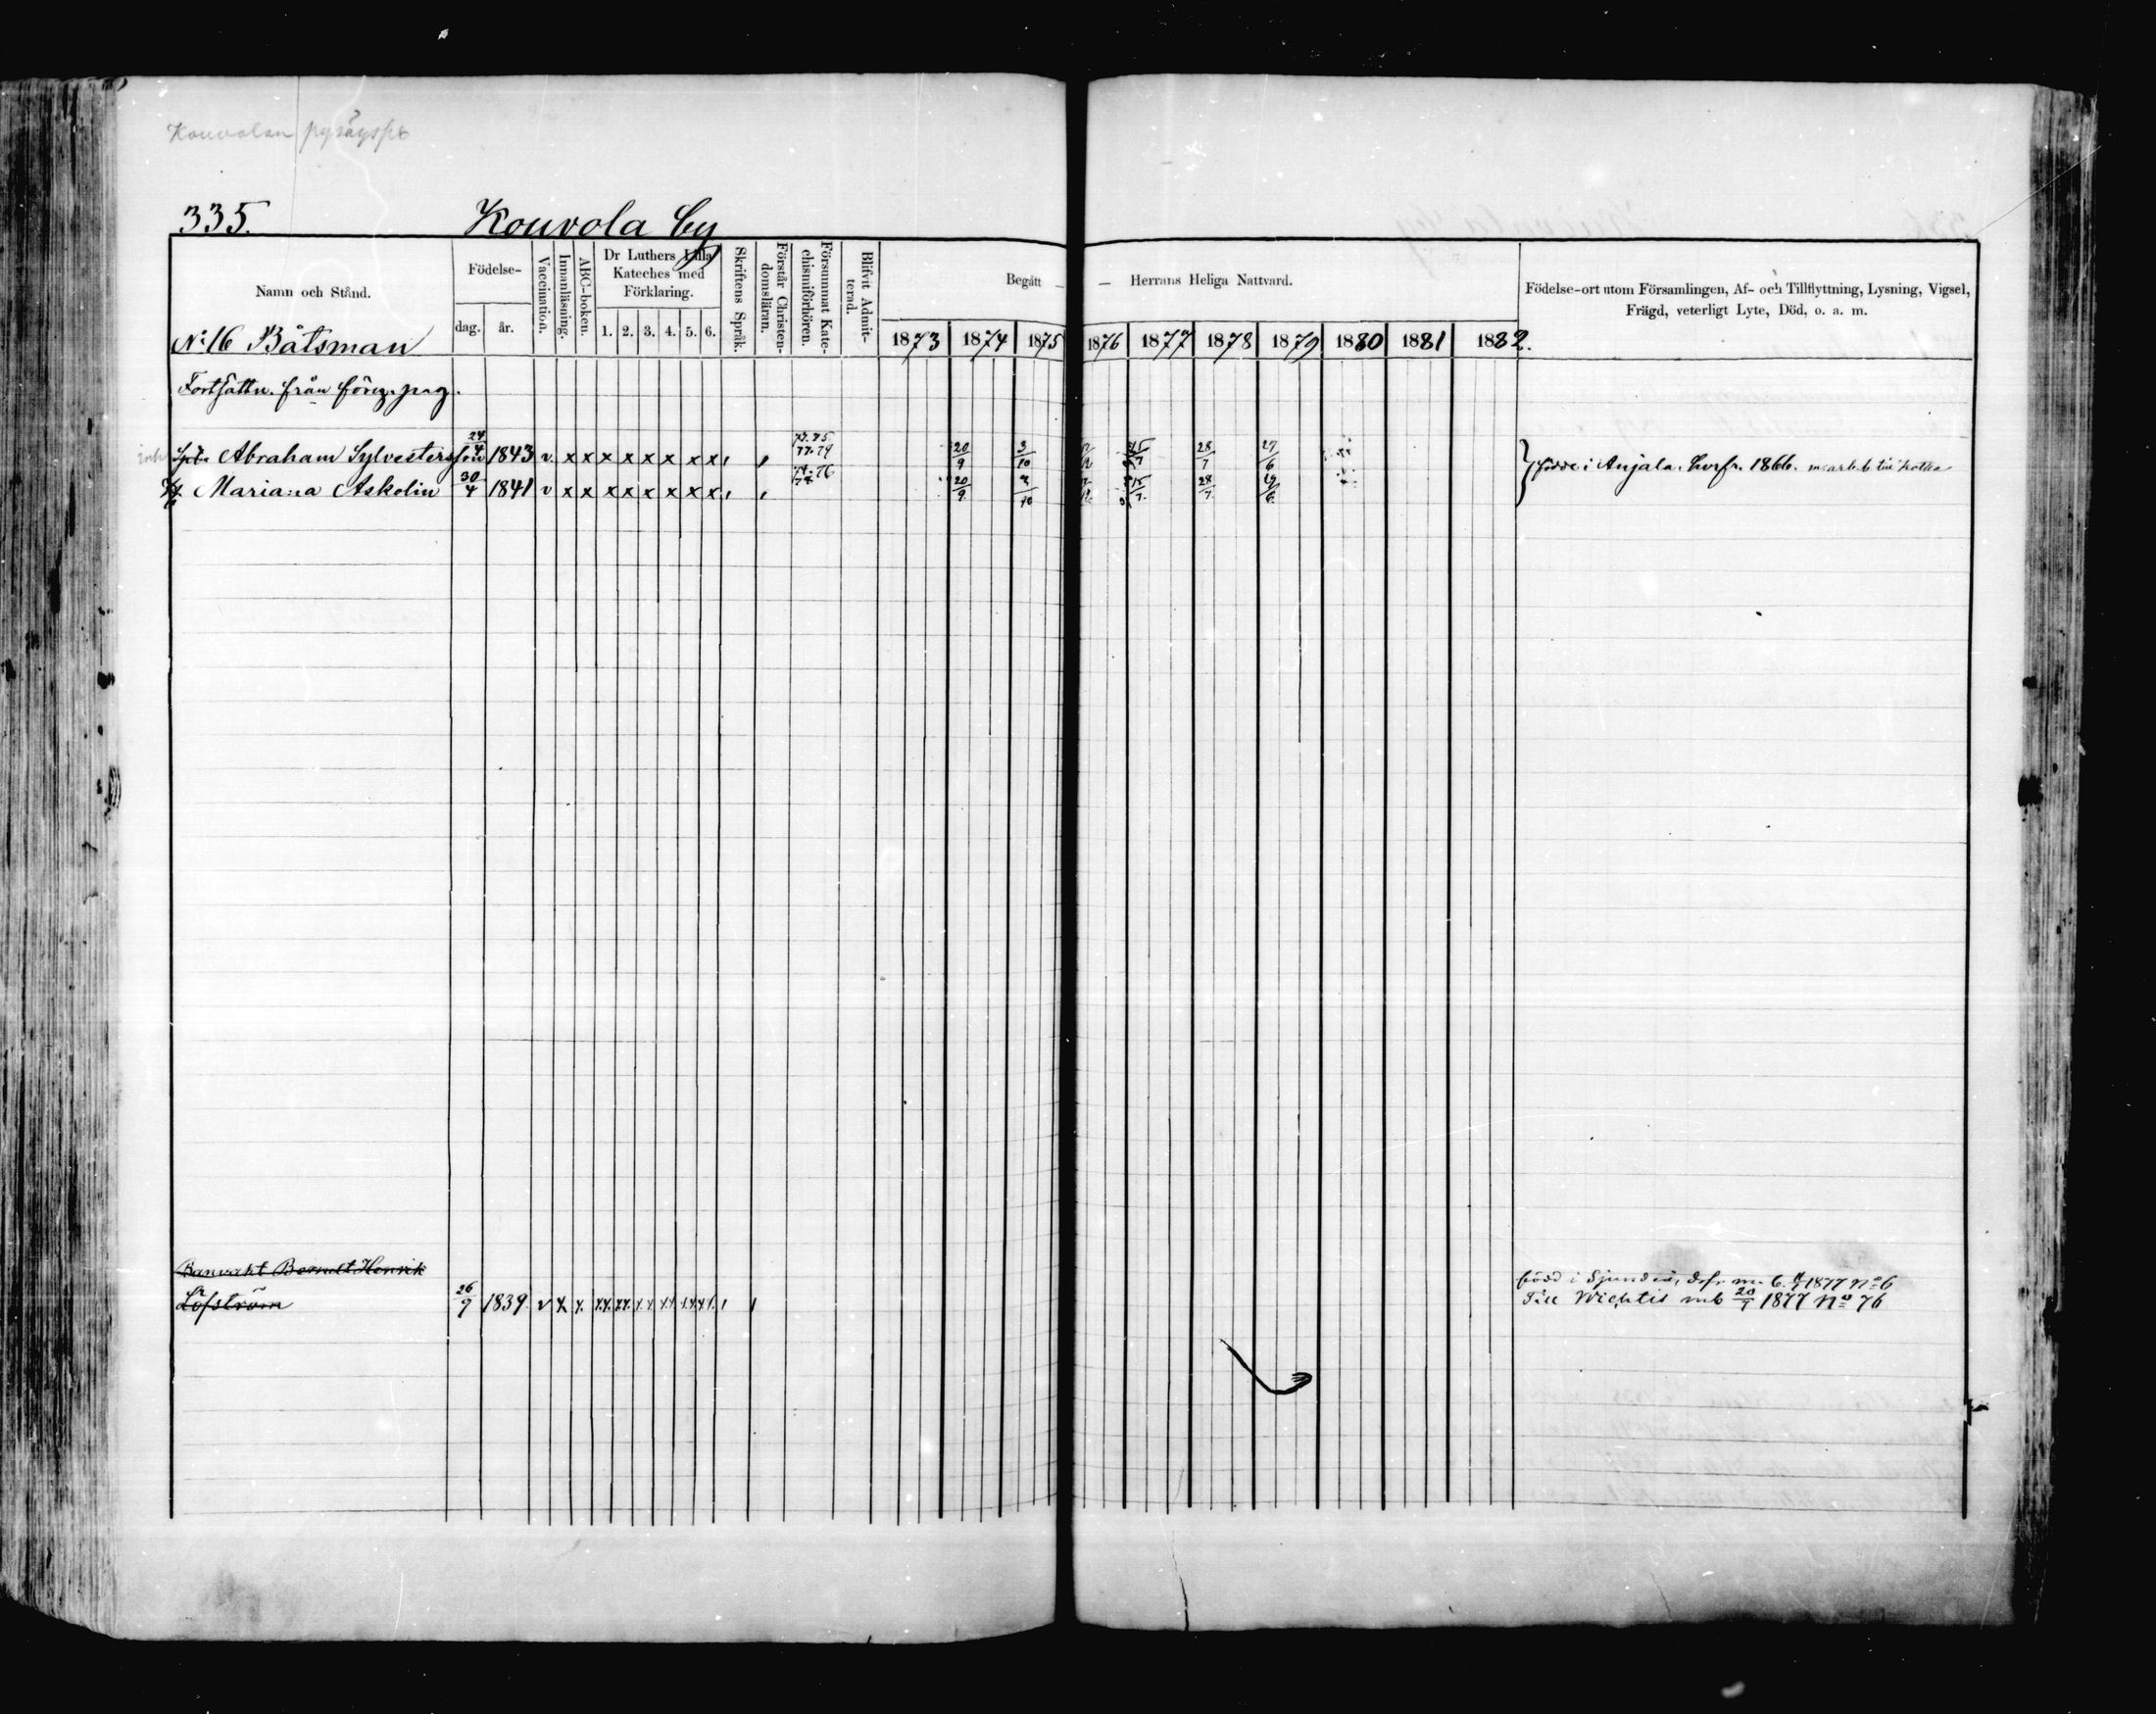 Kouvolan pysäyspt
335. Kouvola by
Namn och Stånd.
Födelse-
dag. år.
Vaccination.
Innanläsning.
ABC-boken.
Dr Luthers Lilla
Kateches med
Förklaring.
1. 2. 3. 4. 5. 6.
Skriftens Språk.
Förstår Christen-
domsläran.
Försummat Kate-
chismiförhören.
Blifvit Admit-
terad.
Begått — — Herrans Heliga Nattvard.
1873 1874 1875 1876 1877 1878 1879 1880 1881 1882.
Födelse-ort utom Församlingen, Af- och Tillflyttning, Lysning, Vigsel,
Frägd, veterligt Lyte, Död, o. a. m.
No 16 Båtsman
Fortsättn. från föreg. pag.
Abraham Sylvestersson 24/4 1843 v x x x x x x x x 74. 75 77. 79 20/9 3/10 15/7 28/7 27/6 födde i Anjala. härfr. 1866.
Mariana Askolin 30/4 1841 v x x x x x x x x 74. 76 78 20/9 3/10 15/7 28/7
Banvakt Berndt Henrik
Löfström 26/9 1839. v x x
född i Sjundeå, 1877 No 6
Till Wichtis mb 20/9 1877 No 76